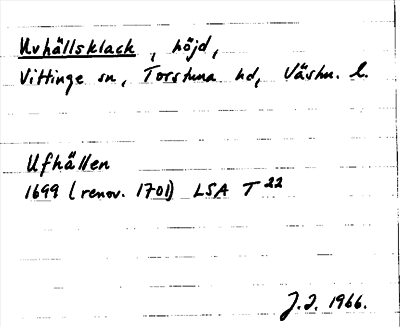 Uvhällsklack, höjd,
Vittinge sn, Torstuna hd, Västm. l.
Ufhällen
1699 (renov. 1701) LSA T 22
J.I. 1966.